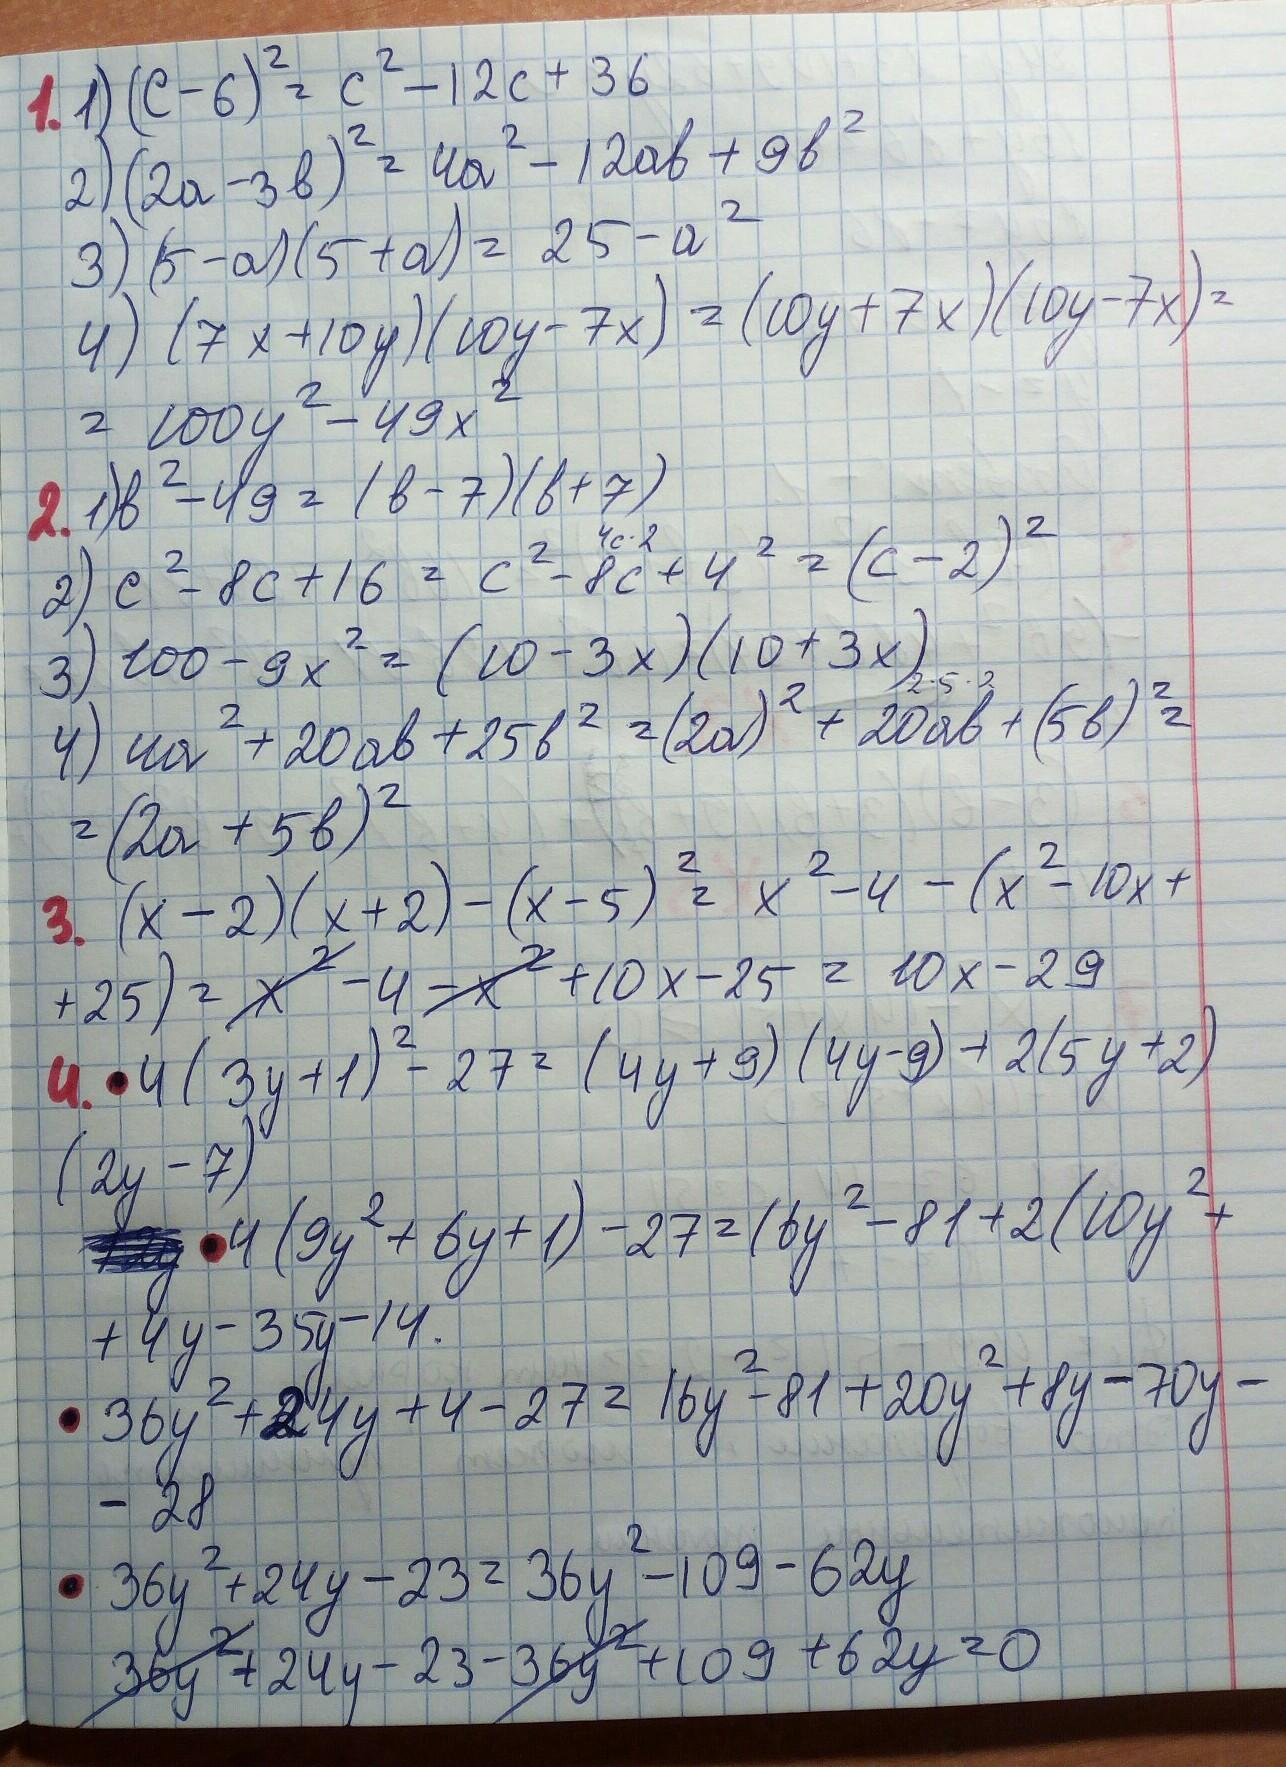 1. 1) (c-6)² = c² - 12c + 36
2) (2a - 3b)² = 4a² - 12ab + 9b²
3) (5-a)(5+a) = 25 - a²
4) (7x+10y)(10y-7x) = (10y+7x)(10y-7x) =
= 100y² - 49x²
2. 1) b² - 49 = (b-7)(b+7)
4c·2
2) c² - 8c + 16 = c² - 8c + 4² = (c-2)²
3) 100 - 9x² = (10 - 3x)(10 + 3x)
2·5·2
4) 4a² + 20ab + 25b² = (2a)² + 20ab + (5b)² =
= (2a + 5b)²
3. (x-2)(x+2) - (x-5)² = x² - 4 - (x² - 10x +
+25) = x² - 4 - x² + 10x - 25 = 10x - 29
4. • 4(3y+1)² - 27 = (4y+9)(4y-9) + 2(5y+2)
(2y-7)
• 4(9y² + 6y + 1) - 27 = 16y² - 81 + 2(10y² +
+ 4y - 35y - 14.
• 36y² + 24y + 4 - 27 = 16y² - 81 + 20y² + 8y - 70y -
- 28
• 36y² + 24y - 23 = 36y² - 109 - 62y
36y² + 24y - 23 - 36y² + 109 + 62y = 0